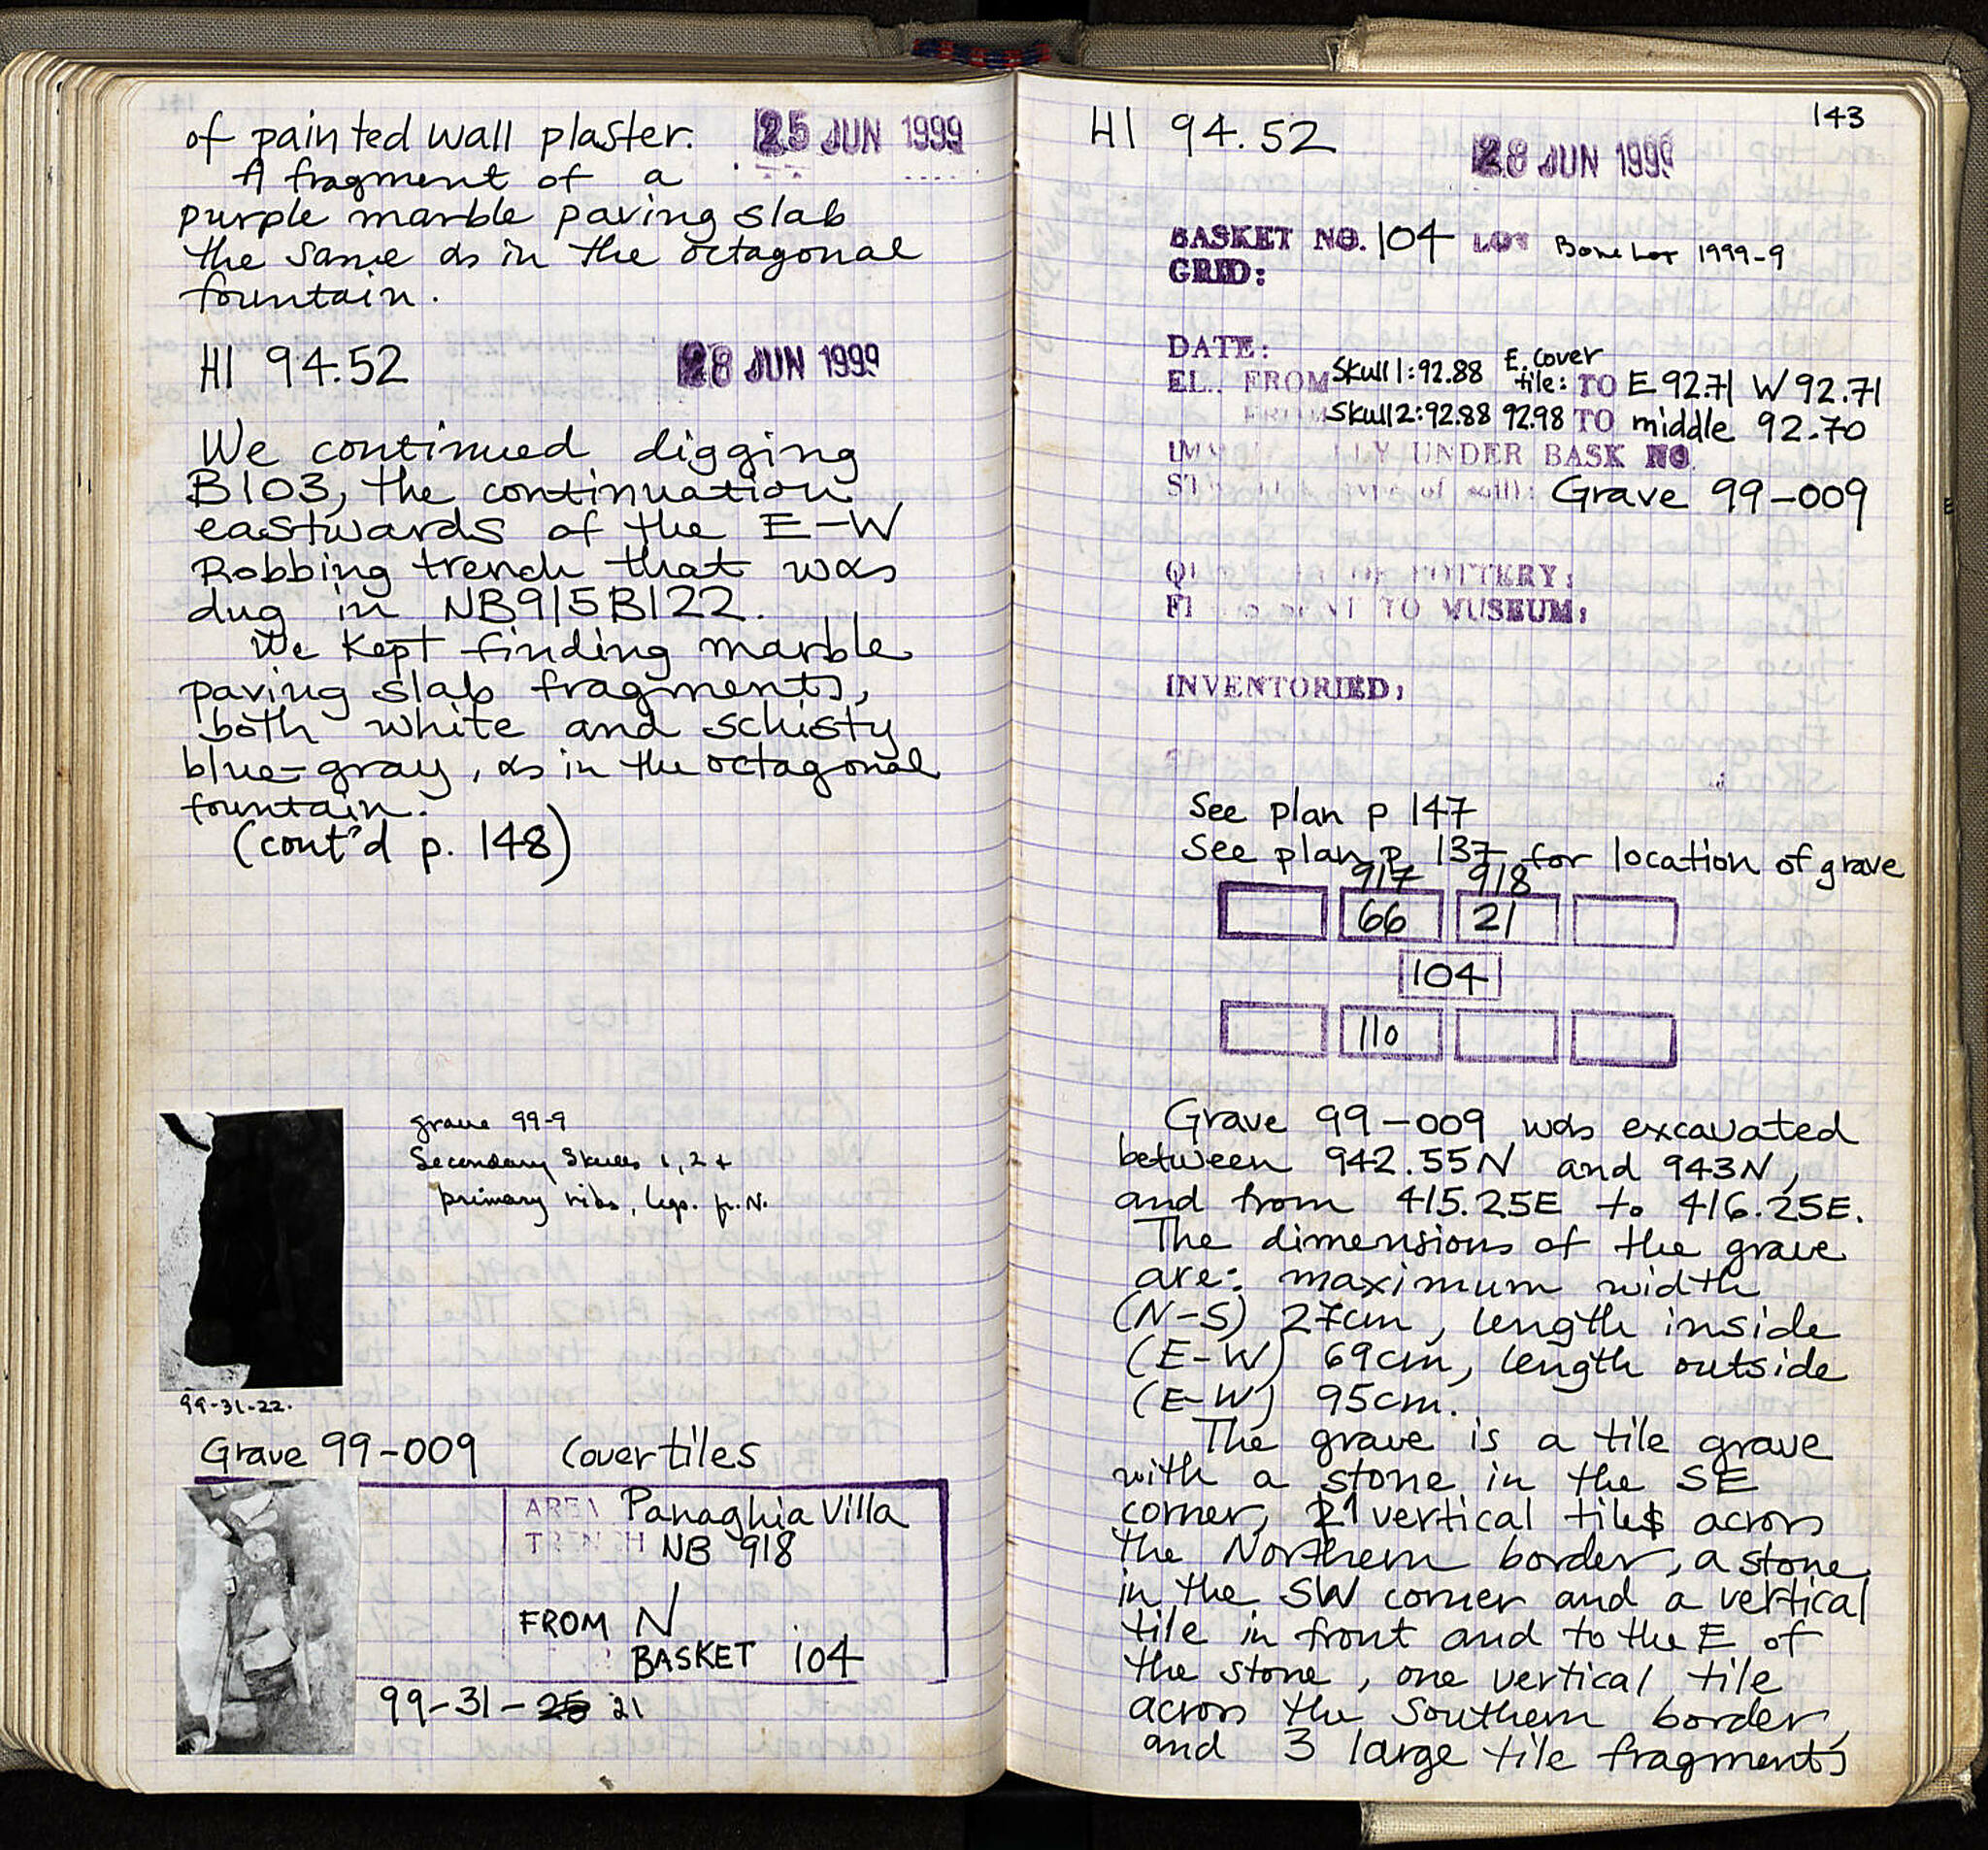 of painted wall plaster. 25 JUN 1999
A fragment of a
purple marble paving slab
the same as in the octagonal
fountain.
HI 94.52 28 JUN 1999
We continued digging
B103, the continuation
eastwards of the E-W
Robbing trench that was
dug in NB915B122.
We kept finding marble
paving slab fragments,
both white and schisty
blue-gray, as in the octagonal
fountain.
(cont'd p. 148)
grave 99-9
Secondary Skulls 1, 2 +
primary ribs, legs. fr. N.
99-31-22.
Grave 99-009 Cover tiles
AREA Panaghia Villa
TRENCH NB 918
FROM N
BASKET 104
99-31-25 21
143
HI 94.52
28 JUN 1999
BASKET NO. 104 LOT Bone Lot 1999-9
GRID:
DATE:
EL. FROM Skull 1: 92.88 E. Cover tile: TO E 92.71 W 92.71
FROM Skull 2: 92.88 92.98 TO middle 92.70
UNDER BASK NO.
Grave 99-009
POTTERY:
TO MUSEUM:
INVENTORIED:
See plan p 147
See plan p 137 for location of grave
917 918
66 21
104
110
Grave 99-009 was excavated
between 942.55N and 943N,
and from 415.25E to 416.25E.
The dimensions of the grave
are: maximum width
(N-S) 27cm, length inside
(E-W) 69cm, length outside
(E-W) 95cm.
The grave is a tile grave
with a stone in the SE
corner, 1 vertical tile across
the Northern border, a stone
in the SW corner and a vertical
tile in front and to the E of
the stone, one vertical tile
across the Southern border,
and 3 large tile fragments